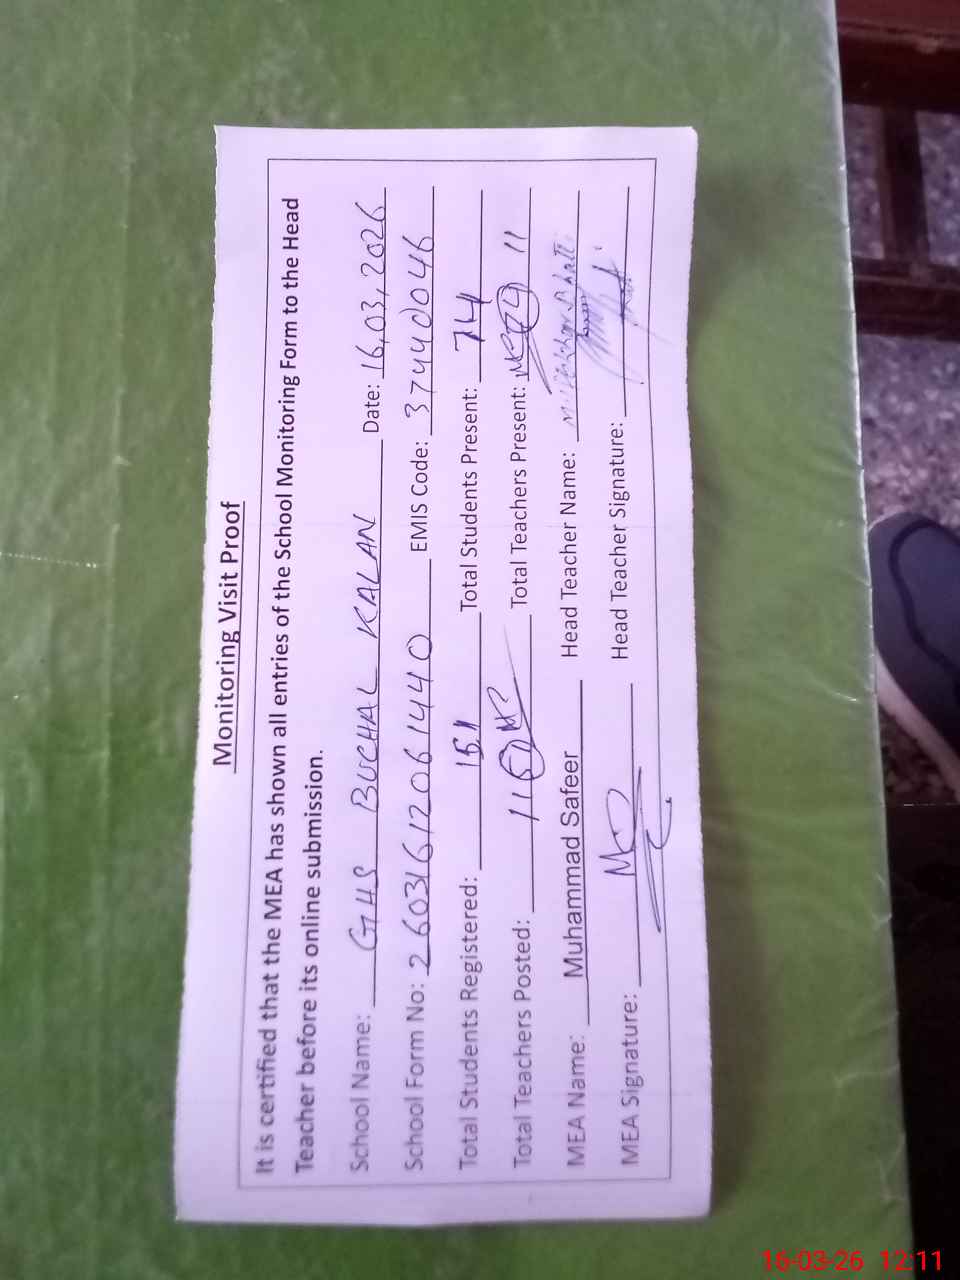 Monitoring Visit Proof
It is certified that the MEA has shown all entries of the School Monitoring Form to the Head
Teacher before its online submission.
School Name: GHS BUCHAL KALAN Date: 16,03,2026
School Form No: 26031612061440 EMIS Code: 37440046
Total Students Registered: 151 Total Students Present: 74
Total Teachers Posted: 11 Total Teachers Present: 11
MEA Name: Muhammad Safeer Head Teacher Name:
MEA Signature: Head Teacher Signature:
16-03-26 12:11